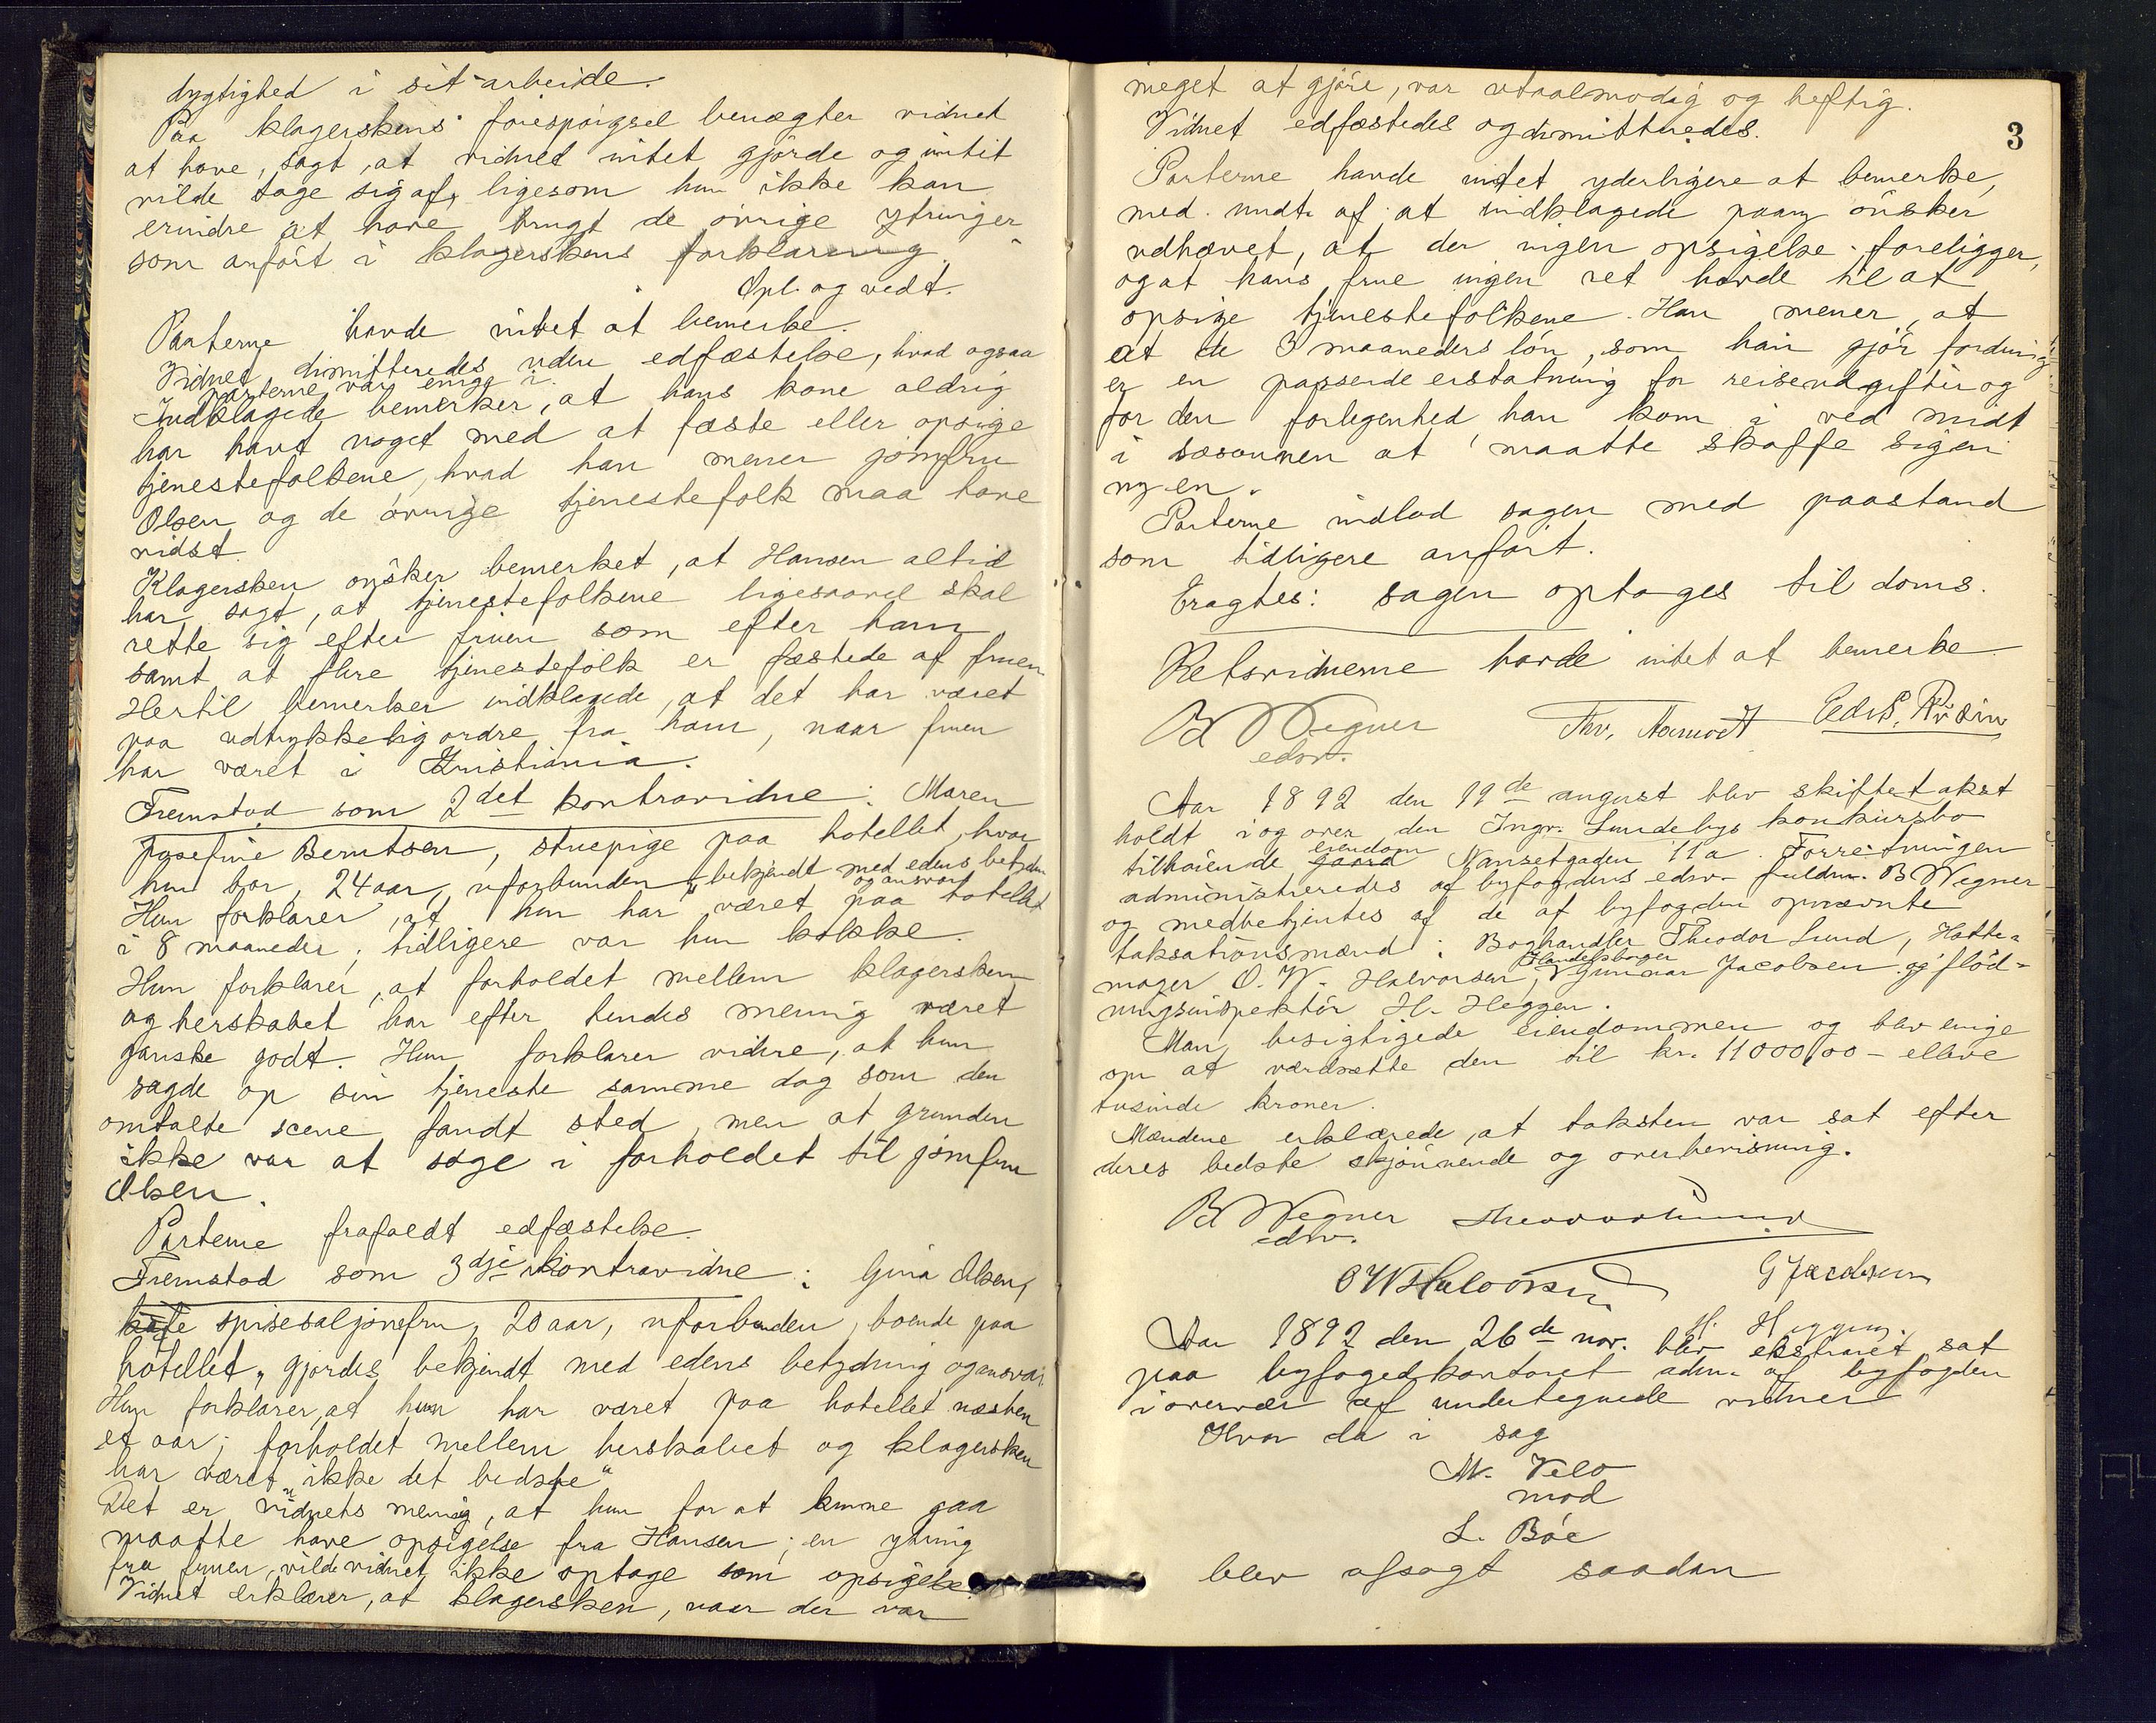 dygtighed i sit arbeide.
Paa klagerskens forespörgsel benægter vidnet
at have sagt, at vidnet intet gjörde og intet
vilde tage sig af, ligesom hun ikke kan
erindre at have brugt de övrige ytringer
som anfört i klagerskens forklaring.
Opl. og vedt.
Parterne havde intet at bemerke.
Vidnet dimitteredes uden edfæstelse, hvad ogsaa
parterne var enige i.
Indklagede bemerker, at hans kone aldrig
har havt noget med at fæste eller opsige
tjenestefolkene, hvad han mener jomfru
Olsen og de övrige tjenestefolk maa have
vidst.
Klagersken önsker bemerket, at Hansen altid
har sagt, at tjenestefolkene ligesaavel skal
rette sig efter fruen som efter ham
samt at flere tjenestefolk er fæstede af fruen
Hertil bemerker indklagede, at det har været
paa udtrykkelig ordre fra ham, naar fruen
har været i Kristiania.
Fremstod som 2det kontravidne: Maren
Josefine Berntsen, stuepige paa hotellet, hvor
hun bor, 24 aar, uforbunden, bekjendt med edens betydn
og ansvar
Hun forklarer, at hun har været paa hotellet
i 8 maaneder; tidligere var hun kokke.
Hun forklarer, at forholdet mellem klagersken
og herskabet har efter hendes mening været
ganske godt. Hun forklarer videre, at hun
sagde op sin tjeneste samme dag som den
omtalte scene fandt sted, men at grunden
ikke var at söge i forholdet til jomfru
Olsen.
Parterne frafaldt edfæstelse.
Fremstod som 3dje kontravidne: Gina Olsen,
spisesaljomfru, 20 aar, uforbunden, boende paa
hotellet, gjordes bekjendt med edens betydning og ansvar
Hun forklarer, at hun har været paa hotellet næsten
et aar; forholdet mellem herskabet og klagersken
har været „ikke det bedste“
Det er vidnets mening, at hun for at kunne gaa
maatte have opsigelse fra Hansen; en ytring
fra fruen, vilde vidnet ikke optage som opsigelse.
Vidnet erklærer, at klagersken, naar der var
3
meget at gjöre, var utaalmodig og heftig.
Vidnet edfæstedes og dimitteredes.
Parterne havde intet yderligere at bemerke,
med undt. af at indklagede paany önsker
udhævet, at der ingen opsigelse foreligger,
og at hans frue ingen ret havde til at
opsige tjenestefolkene. Han mener, at
at de 3 maaneders lön, som han gjör fordring
er en passende erstatning for reiseudgifter og
for den forlegenhed han kom i ved midt
i sæsonnen at maatte skaffe sig en
ny en.
Parterne indlod sagen med paastand
som tidligere anfört.
Eragtes: sagen optages til doms.
Retsvidnerne havde intet at bemerke.
B Wegner
edsv.
Thv. Aamodt
Aar 1892 den 19de august blev skiftetakst
holdt i og over den Ingv. Lundebys konkursbo
tilhörende eiendom Nansetgaden 11a. Forretningen
administreredes af byfogdens edsv. fuldm. B Wegner
og medbetjentes af de af byfogden opnævnte
taksationsmænd: Boghandler Theodor Lund, Hatte=
mager O. W. Halvorsen, Handelsborger Gunnar Jacobsen og flöd=
ningsinspektör H. Heggen.
Man besigtigede eiendommen og blev enige
om at værdsætte den til kr. 11000,00 – elleve
tusinde kroner.
Mændene erklærede, at taksten var sat efter
deres bedste skjönnende og overbevisning.
B Wegner
edsv.
Theodor Lund
O W Halvorsen
G Jacobsen
H. Heggen.
Aar 1892 den 26de nov. blev ekstraret sat
paa byfogedkontoret adm. af byfogden
i overvær af undertegnede vidner
Hvor da i sag
M. Velo
mod
L. Böe
blev afsagt saadan